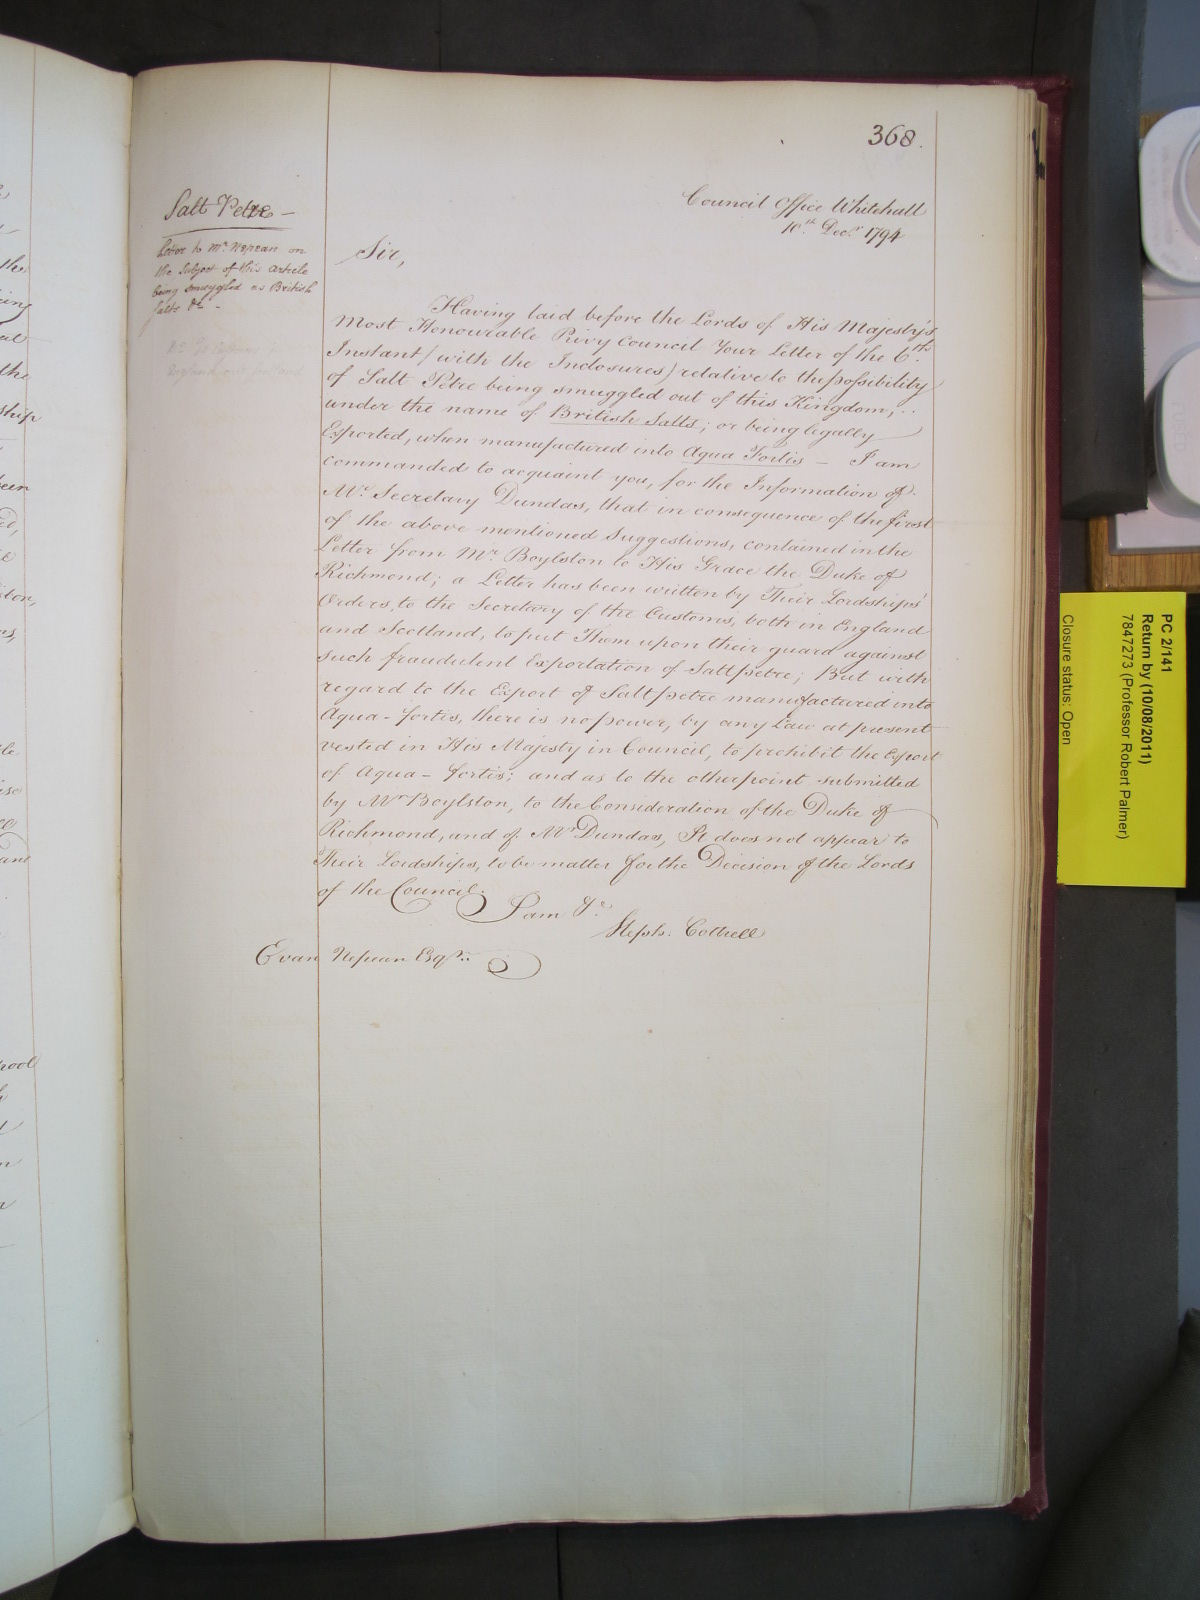 368.
Council Office Whitehall
10th. Decr. 1794
Salt Petre –
Letter to Mr. Nepean on
the subject of this Article
being smuggled as British
Salts &c –
Sir,
Having laid before the Lords of His Majesty's
Most Honourable Privy Council Your Letter of the 6th.
Instant (with the Inclosures) relative to the possibility
of Salt Petre being smuggled out of this Kingdom, ..
under the name of British Salts; or being legally
Exported, when manufactured into Aqua Fortis – I am
commanded to acquaint you, for the Information of
Mr. Secretary Dundas, that in consequence of the first
of the above mentioned Suggestions, contained in the
Letter from Mr. Boylston to His Grace the Duke of
Richmond; a Letter has been written by Their Lordships'
Orders, to the Secretary of the Customs, both in England
and Scotland, to put Them upon their guard against
such fraudulent Exportation of Saltpetre; But with
regard to the Export of Saltpetre manufactured into
Aqua-fortis, there is no power, by any Law at present
vested in His Majesty in Council, to prohibit the Export
of Aqua-fortis; and as to the other point submitted
by Mr. Boylston, to the Consideration of the Duke of
Richmond, and of Mr. Dundas, It does not appear to
Their Lordships, to be matter for the Decision of the Lords
of the Council.
I am &c.
Steph: Cottrell
Evan Nepean Esqr.
PC 2/141
Return by (10/08/2011)
7847273 (Professor Robert Palmer)
Closure status: Open